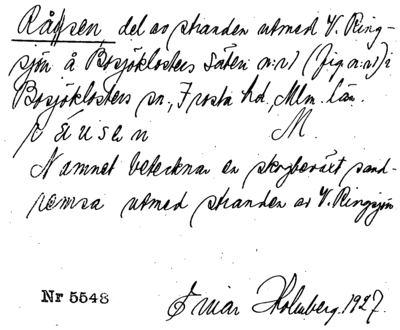 Råsen, del av stranden utmed V. Ring-
sjön å Bosjöklosters Säteri n:r 1 (fig. n:r 1) i
Bosjöklosters sn., Frosta hd, Mlm. län.
råusen M.
Namnet betecknar en skogbeväxt sand-
remsa utmed stranden av V. Ringsjön
Nr 5548 Einar Holmberg. 1927.